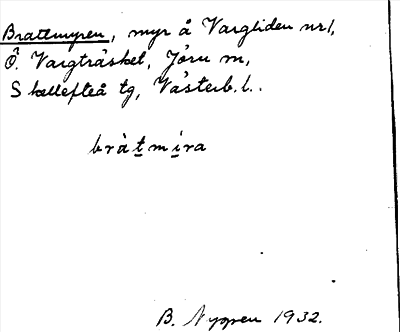 Brattmyren, myr å Vargliden nr 1,
Ö. Vargträsket, Jörn m,
Skellefteå tg, Västerb. l..
bràtmira
B. Nygren 1932.